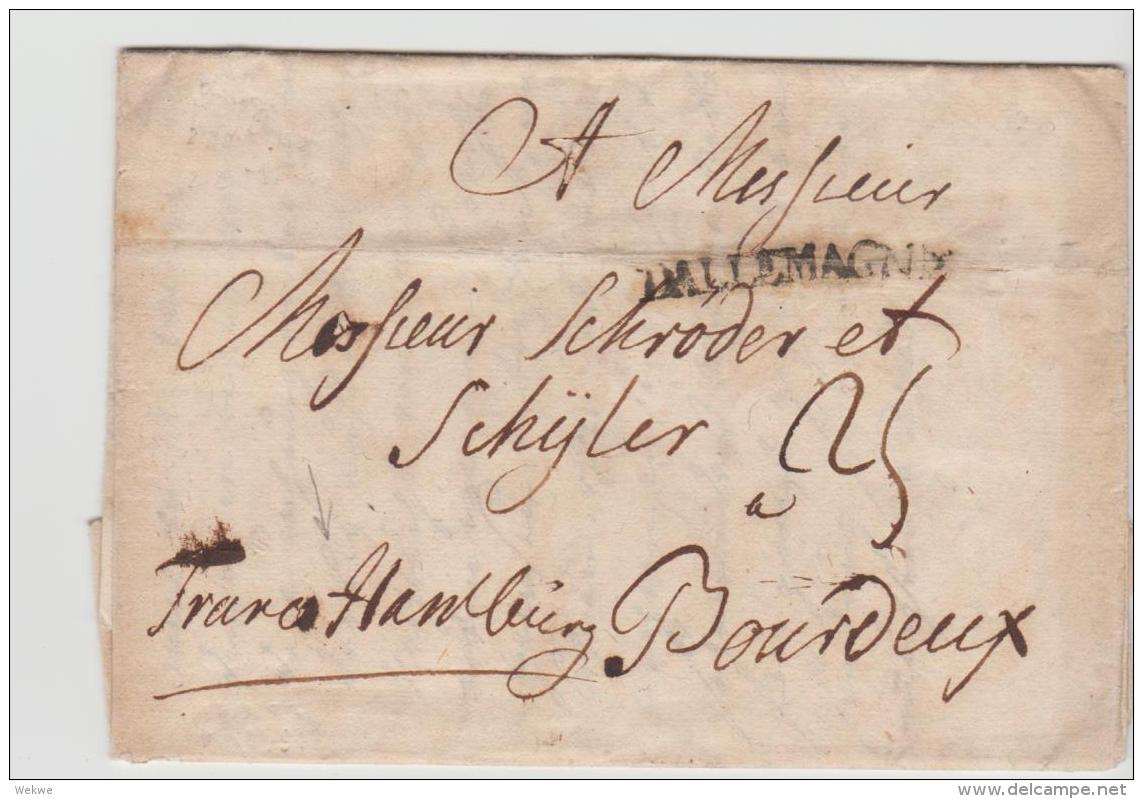 A Messieur
D'ALLEMAGNE
Messieur Schröder et
Schÿler
25
a
Franco Hamburg Bourdeux
Wekwe
www.delcampe.net